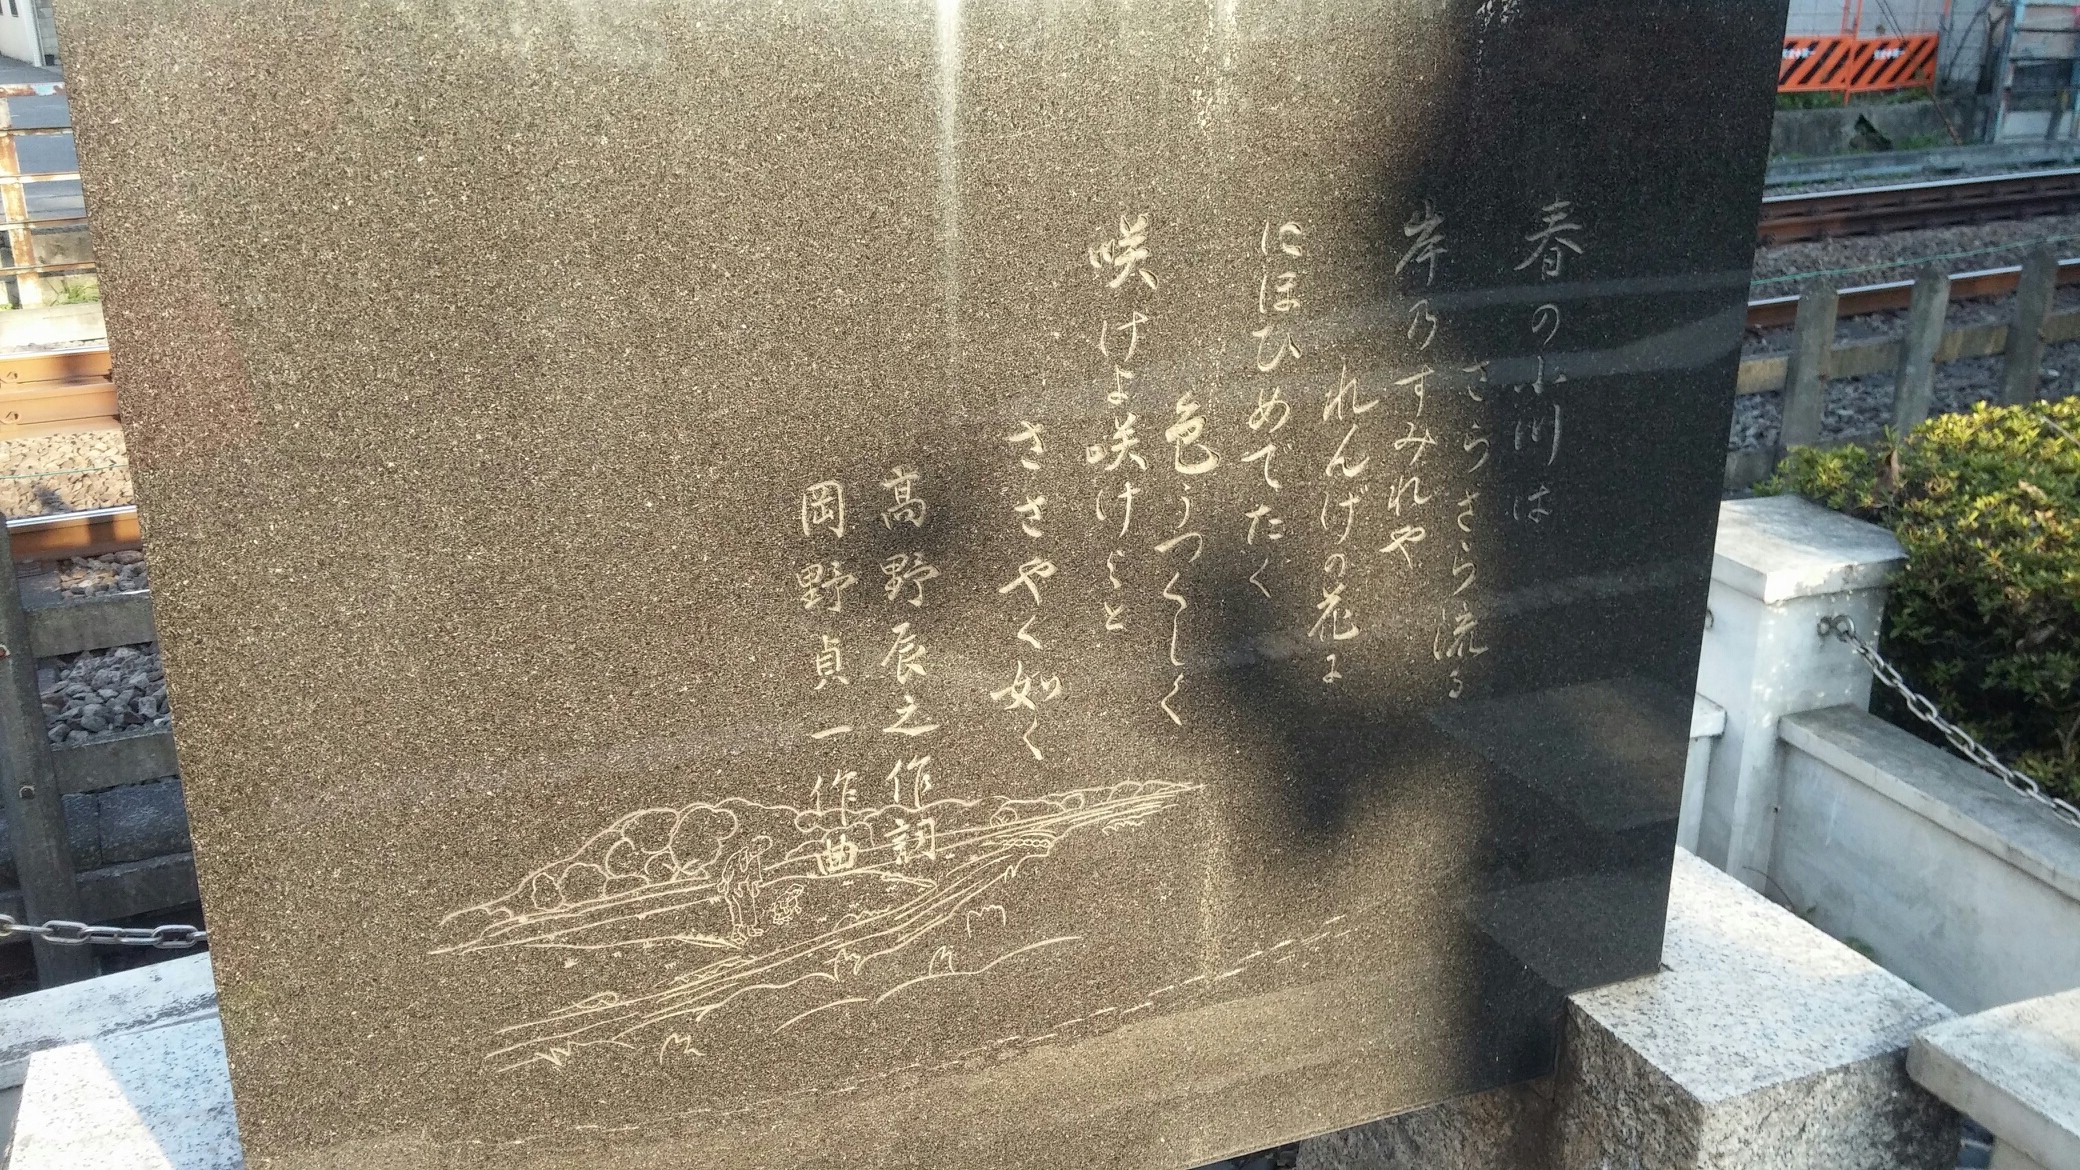 春の小川は
さらさら流る
岸乃すみれや
れんげの花に
にほひめでたく
色うつくしく
咲けよ咲けよと
ささやく如く
高野辰之作詞
岡野貞一作曲